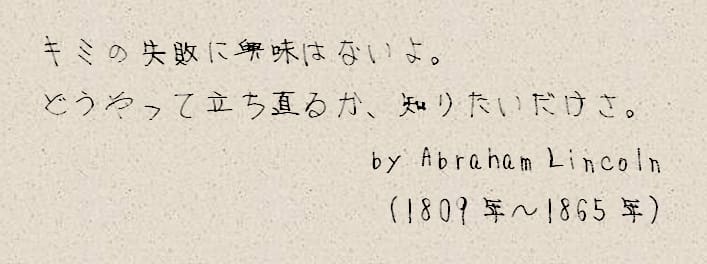 キミの失敗に興味はないよ。
どうやって立ち直るか、知りたいだけさ。
by Abraham Lincoln
(1809年～1865年)